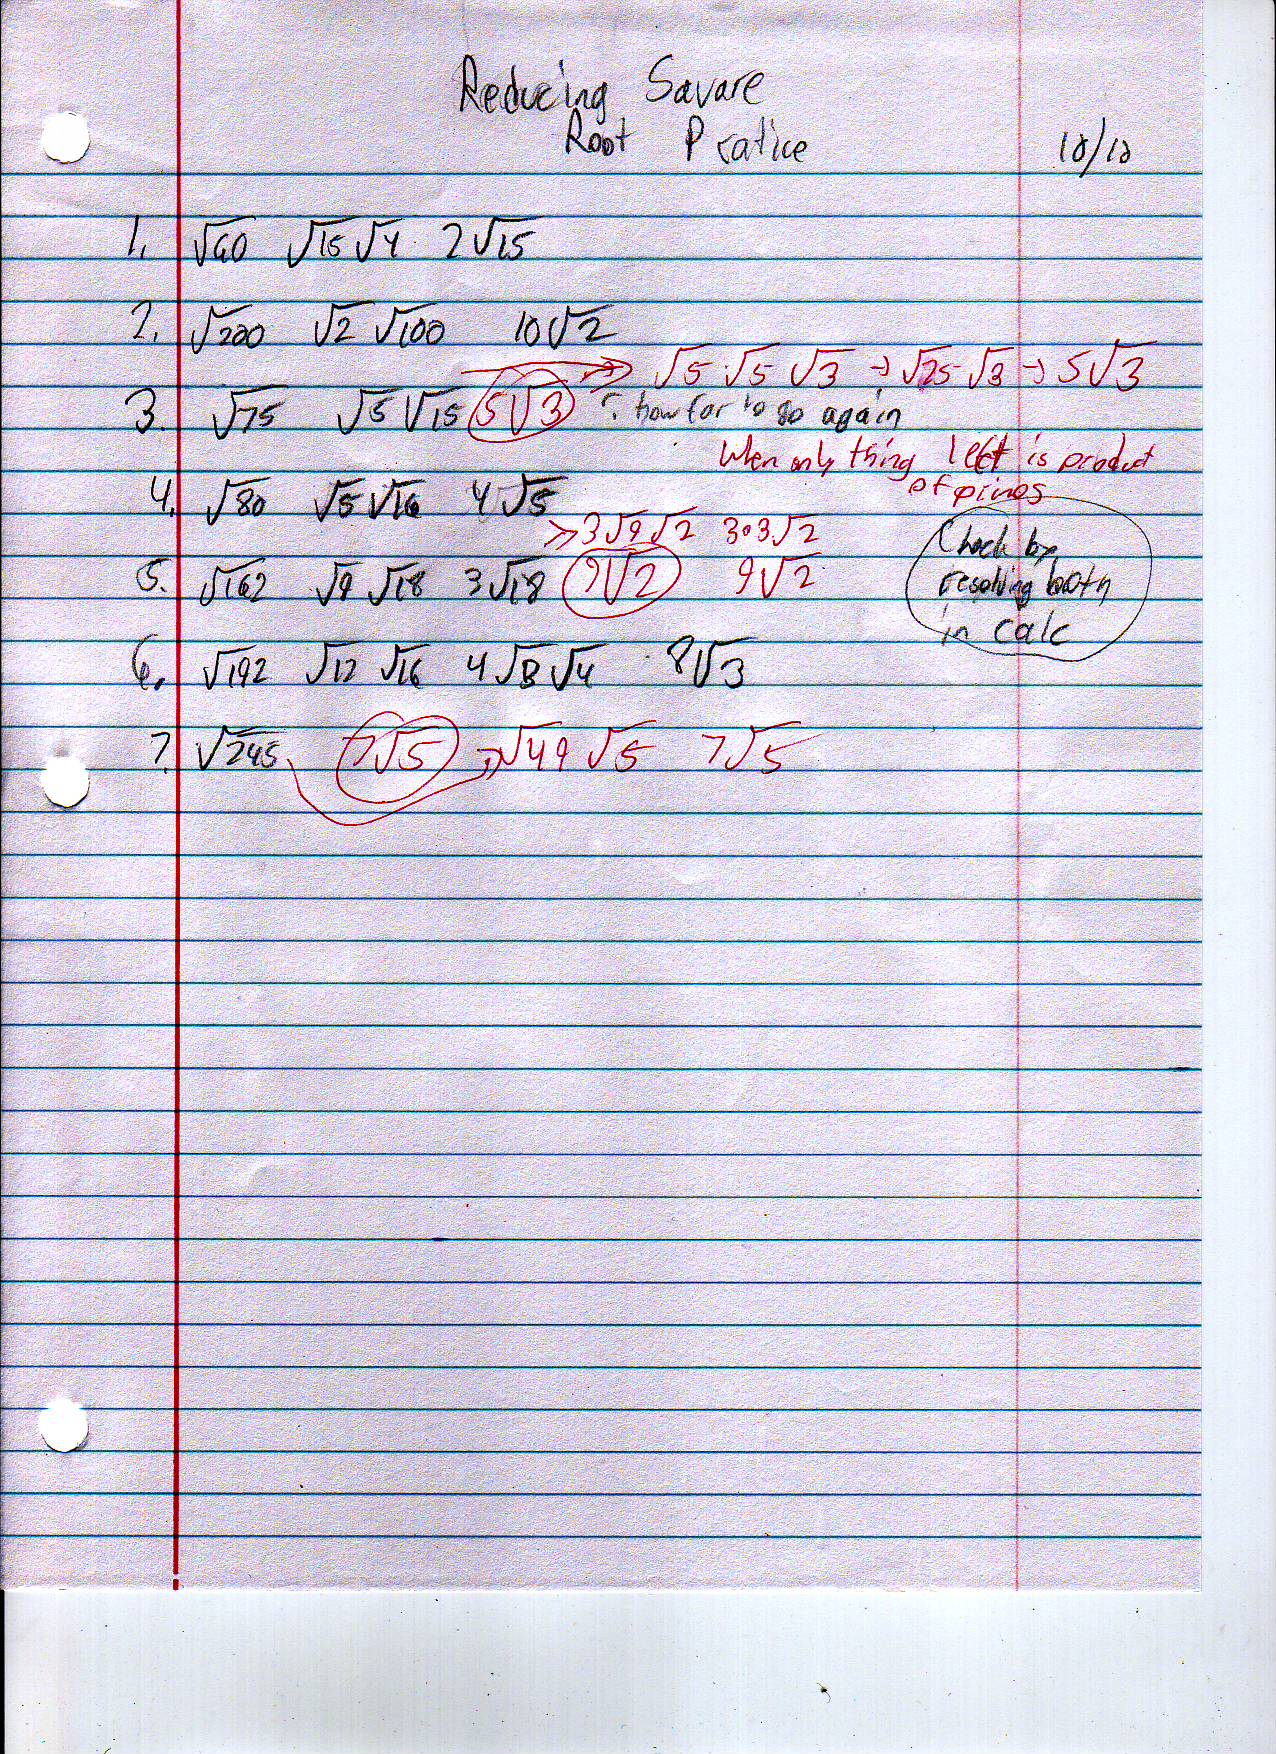 Reducing Savare
Root Pratice 10/10
1. √60 √15 √4 2√15
2. √200 √2 √100 10√2
√5 √5 √3 → √25 √3 → 5√3
3. √75 √5 √15 5√3 ? how far to go again
When only thing left is product
of primes
4. √80 √5 √16 4√5
3√9√2 3•3√2
5. √162 √9 √18 3√18 9√2 9√2
Check by
resolving both
in calc
6. √192 √12 √16 4√3√4 8√3
7. √245 7√5 → √49 √5 7√5